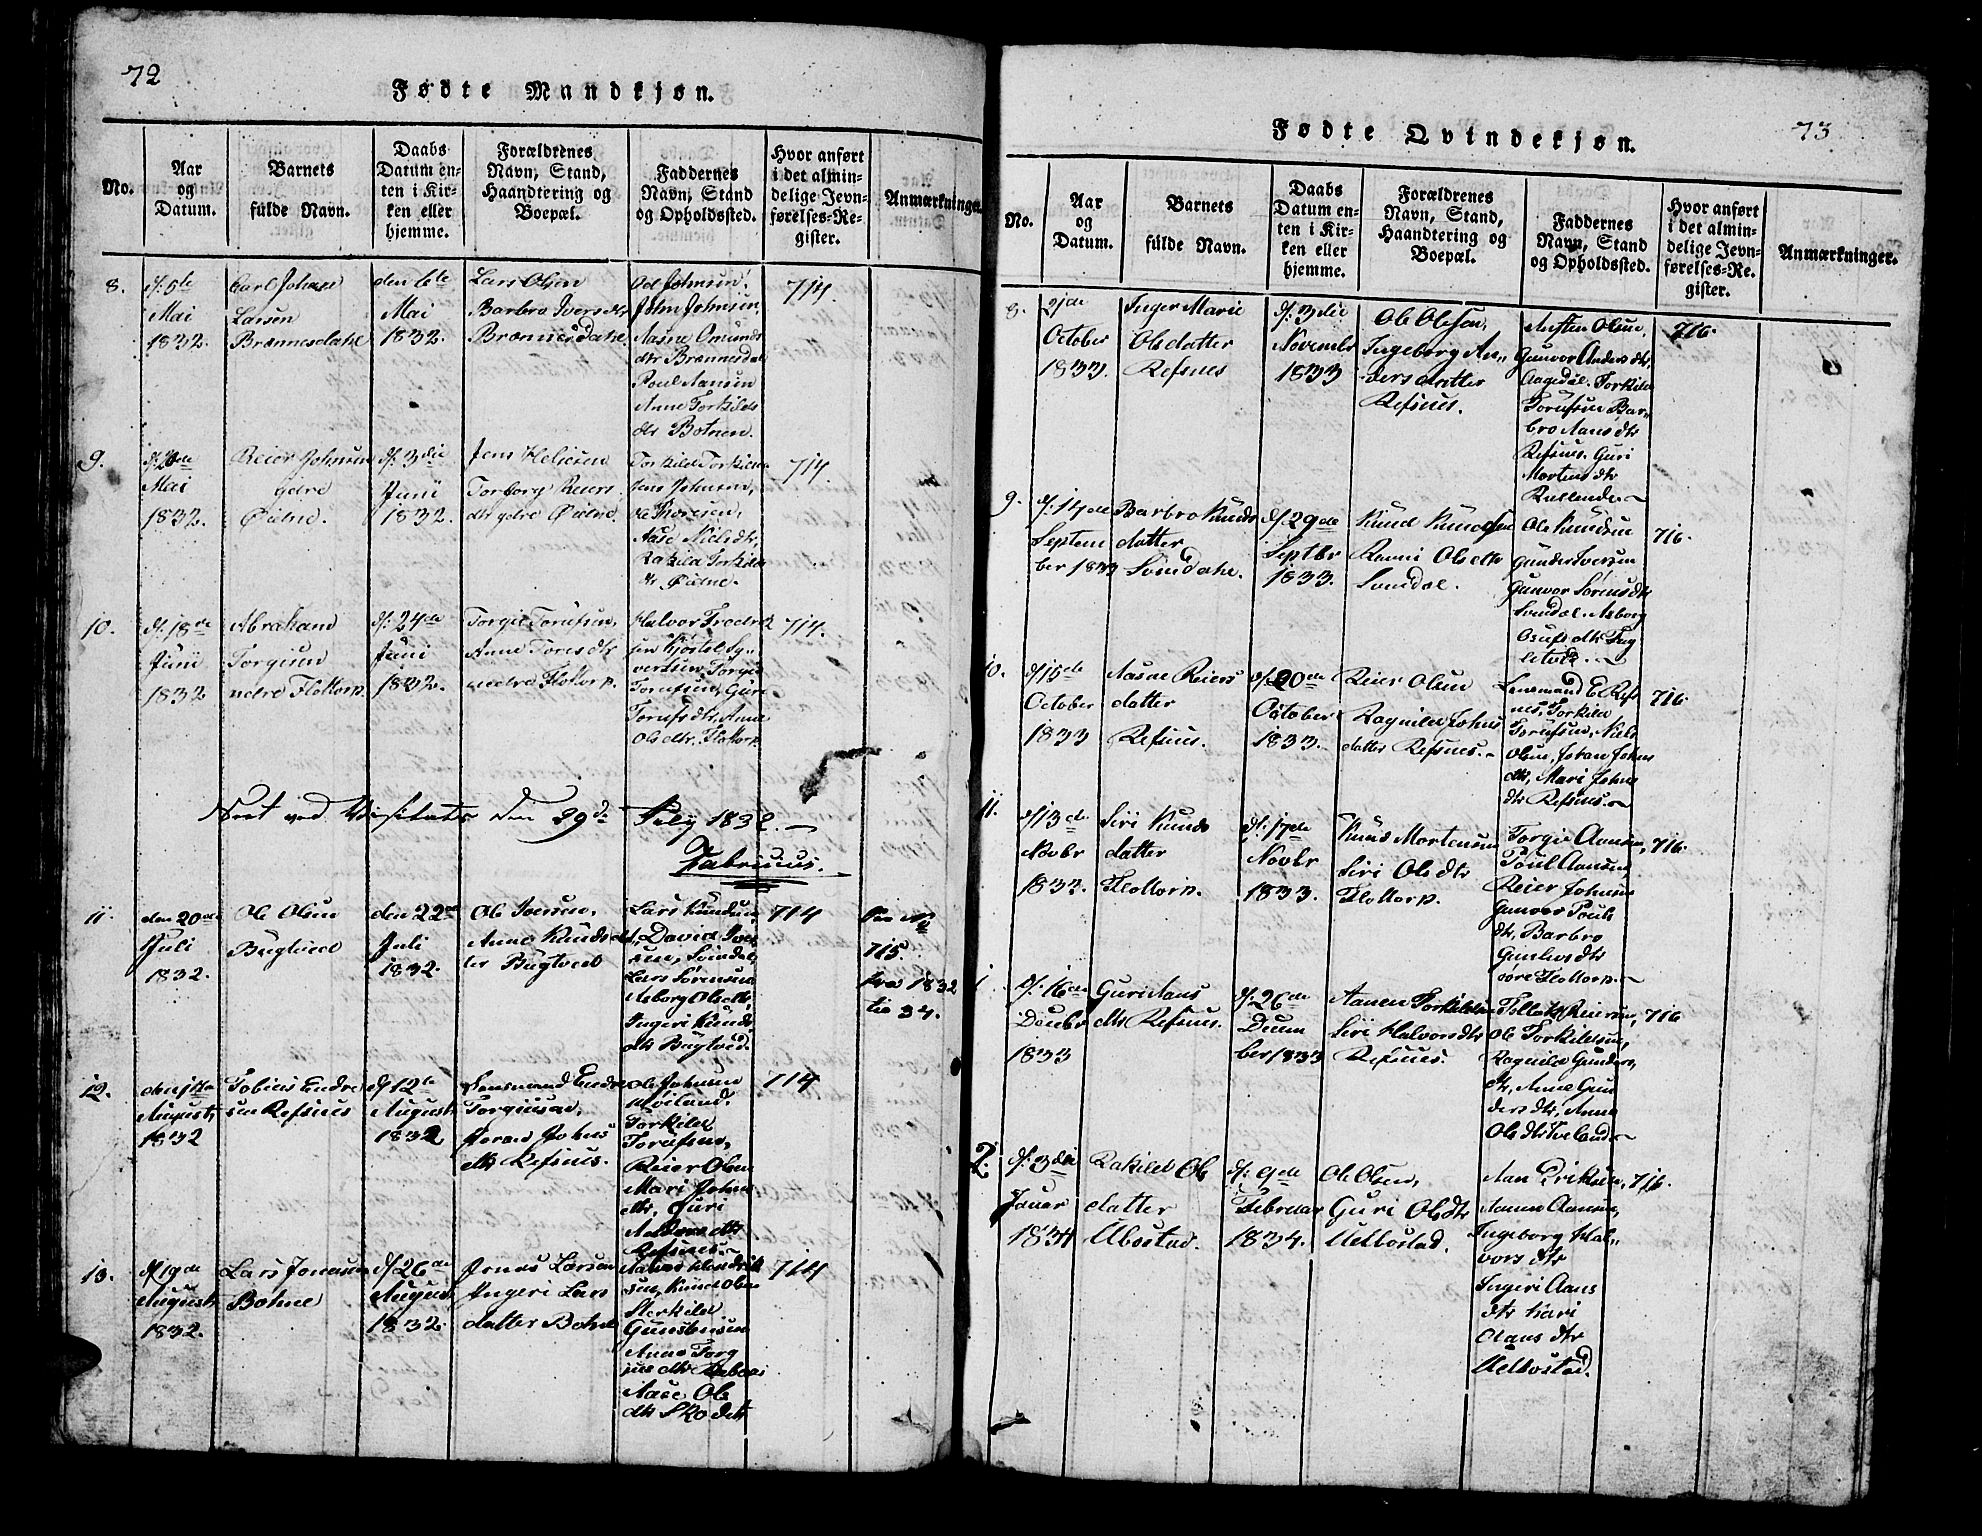 72
Fødte Mandkjøn.
No.
Aar og Datum.
Barnets fulde Navn.
Daabs Datum enten i Kirken eller hjemme.
Forældrenes Navn, Stand, Haandtering og Boepæl.
Faddernes Navn, Stand og Opholdssted.
Hvor anført i det almindelige Jevnførelses-Register.
Anmærkninger.
8.
d: 5te
Mai
1832.
Carl Johan
Larsen
Brønnesdahl
den 6te
Mai
1832.
Lars Olsen
Barbro Ivers dtr
Brønnesdahl
Ole Johnsen,
John Johnsen,
Aasne Omunds
dtr Brønnesdal
Poul Aansen
Anne Torkilds
dtr Botnen.
714.
9.
Mai
1832.
Reier Johnsen
ydre
Øidne.
d: 3die
Junii
1832.
Jens Heliesen
Torborg Reiers
dtr ydre Øidne
Torkild Torkilds
Jens Johnsen,
Ole Thoresen,
Aase Niels dtr,
Rakild Torkilds
dr. Øidne.
714.
10.
d: 18de
Junii
1832
Abraham
Torgisen
nedre Flottorp.
d: 24de
Junii
1832.
Torgie Torufsen,
Anne Tores dtr
nedre Flottorp.
Halvor Fredrik
sen Kjøstel Sy-
vertsen Torgie
Torufsen, Guri
Torufs dtr, Anne
Ols dtr. Flottorp
714.
Seet ved Visitats den 29de July 1832.
Fabricius.
11.
den 20de
Juli
1832.
Ole Olsen
Bugtved
den 22de
Juli
1832.
Ole Iversen,
Anne Knudsdat
ter Bugtved
Lars Knudsen,
David Iver
sen, Svindal,
Lars Sørensen
Asborg Ols dtr,
Ingeri Knuds
dtr Bugtved.
714
See No
715.
fra 1832
til 34.
12.
August
1832
Tobias Endre
sen Refsnes
d 12te
August
1832
Lensmand Endre
Torgiusen,
Joran Johns
dtr Refsnes.
Ole Johnsen
Høiland.
Torkild
Torufsen,
Reier Olsen
Mari Johns
dtr, Guri
Anders dtr
Refsnes.
714
13.
d 19de
August
1832.
Lars Jonassen
Bohne
d 26de
August
1832.
Jonas Larsen
Ingeri Lars
datter Bohne
Aanen Hendrik
sen, Knud Olsen
Sterkild
Gunstensen
Anne Torg
jus dtr
Aase Ols
dtr
714
73.
Fødte Qvindekjøn.
No.
Aar og Datum.
Barnets fulde Navn.
Daabs Datum enten i Kirken eller hjemme.
Forældrenes Navn, Stand, Haandtering og Boepæl.
Faddernes Navn, Stand og Opholdssted.
Hvor anført i det almindelige Jevnførelses-Re. gister.
Anmærkninger.
8.
October
1833.
Inger Marie
Ols datter
Refsnes
d: 3die
Novembr
1833
Ole Olsen,
Ingeborg An-
ders datter
Refsnes.
Austen Olsen,
Gunvor Anders dtr,
Aagedal. Torkild
Torufsen Bar-
bro Aans dtr
Refsnes. Guri
Mortens dtr
716.
9.
d: 14de
Septem
ber 1833
Barbro Knuds
datter
Svindahl.
d 29de
Septbr
1833.
Knud Knudsen
Ranni Ols dtr
Svindal.
Ole Knudsen
Gunder Iversen
Gunvor Sørens dtr
Svindal. Asborg
Osufs dtr
716.
10.
d 15de
October
1833
Aasne Reiers
datter
Refsnes.
d: 20de
October
1833.
Reier Olsen
Ragnild Johns
datter Refsnes.
Lensmand E. Refs
nes, Torkild
Torufsen, Niels
Olsen, Joran Johns
dtr, Mari Johns
dtr Refsnes.
716.
11.
d 13de
Novbr
1833.
Siri Knuds
datter
Flottorp.
d: 17de
Novbr
1833.
Knud Mortensen
Siri Ols dtr
Flottorp.
Torgie Aansen,
Poul Aansen,
Reier Johnsen
Gunvor Pouls
dtr, Barbro
Gunlevs dtr
øvre Flottorp.
716.
1
d: 16de
Decbr
1833
Guri Aans
dtr Refsnes.
d: 26de
Decem
ber 1833
Aanen Torkildsen
Siri Halvors dtr
Refsnes.
Tellef Reiersen,
Ole Torkildsen,
Ragnild Gunders
dtr, Anne Gun
ders dtr, Anne
Ols dtr Iveland.
716
2.
d: 3die
Januar
1834
Rakild Ols
datter
Ubostad.
d: 9de
Februar
1834.
Ole Olsen,
Guri Ols dtr
Uelbostad.
Aan Eriksen,
Aanen Aansen,
Ingeborg Hal-
vors dtr
Ingeri Aans
dtr Kari
Olaus dtr
Uelbostad.
716.